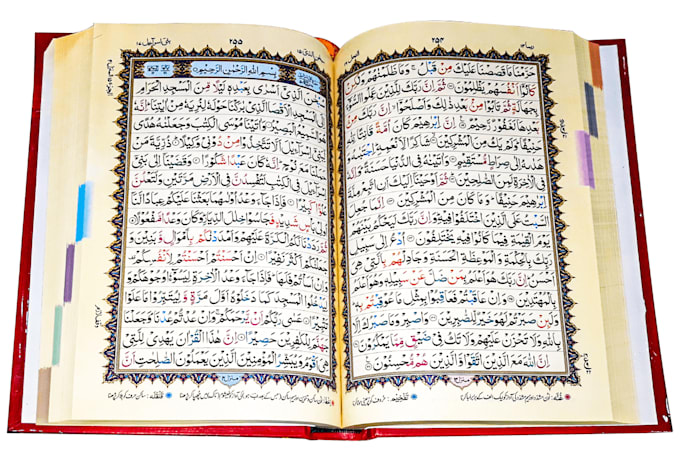 ٢٥٤
حَرَّمْنَا مَا قَصَصْنَا عَلَيْكَ مِنْ قَبْلُ وَمَا ظَلَمْنٰهُمْ وَلٰكِنْ
كَانُوْٓا اَنْفُسَهُمْ يَظْلِمُوْنَ ثُمَّ اِنَّ رَبَّكَ لِلَّذِيْنَ عَمِلُوا السُّوْٓءَ
بِجَهَالَةٍ ثُمَّ تَابُوْا مِنْۢ بَعْدِ ذٰلِكَ وَاَصْلَحُوْٓا اِنَّ رَبَّكَ مِنْۢ
بَعْدِهَا لَغَفُوْرٌ رَّحِيْمٌ اِنَّ اِبْرٰهِيْمَ كَانَ اُمَّةً قَانِتًا لِّلّٰهِ
حَنِيْفًا وَلَمْ يَكُ مِنَ الْمُشْرِكِيْنَ شَاكِرًا لِّاَنْعُمِهٖ اِجْتَبٰىهُ وَ
هَدٰىهُ اِلٰى صِرَاطٍ مُّسْتَقِيْمٍ وَاٰتَيْنٰهُ فِى الدُّنْيَا حَسَنَةً وَاِنَّهٗ
فِى الْاٰخِرَةِ لَمِنَ الصّٰلِحِيْنَ ثُمَّ اَوْحَيْنَآ اِلَيْكَ اَنِ اتَّبِعْ مِلَّةَ
اِبْرٰهِيْمَ حَنِيْفًا وَمَا كَانَ مِنَ الْمُشْرِكِيْنَ اِنَّمَا جُعِلَ
السَّبْتُ عَلَى الَّذِيْنَ اخْتَلَفُوْا فِيْهِ وَاِنَّ رَبَّكَ لَيَحْكُمُ بَيْنَهُمْ
يَوْمَ الْقِيٰمَةِ فِيْمَا كَانُوْا فِيْهِ يَخْتَلِفُوْنَ اُدْعُ اِلٰى سَبِيْلِ
رَبِّكَ بِالْحِكْمَةِ وَالْمَوْعِظَةِ الْحَسَنَةِ وَجَادِلْهُمْ بِالَّتِيْ هِيَ
اَحْسَنُ اِنَّ رَبَّكَ هُوَ اَعْلَمُ بِمَنْ ضَلَّ عَنْ سَبِيْلِهٖ وَهُوَ اَعْلَمُ
بِالْمُهْتَدِيْنَ وَاِنْ عَاقَبْتُمْ فَعَاقِبُوْا بِمِثْلِ مَا عُوْقِبْتُمْ بِهٖ
وَلَئِنْ صَبَرْتُمْ لَهُوَ خَيْرٌ لِّلصّٰبِرِيْنَ وَاصْبِرْ وَمَا صَبْرُكَ اِلَّا
بِاللّٰهِ وَلَا تَحْزَنْ عَلَيْهِمْ وَلَا تَكُ فِيْ ضَيْقٍ مِّمَّا يَمْكُرُوْنَ
اِنَّ اللّٰهَ مَعَ الَّذِيْنَ اتَّقَوْا وَّالَّذِيْنَ هُمْ مُّحْسِنُوْنَ
٢٥٥
بِسْمِ اللّٰهِ الرَّحْمٰنِ الرَّحِيْمِ
سُبْحٰنَ الَّذِيْٓ اَسْرٰى بِعَبْدِهٖ لَيْلًا مِّنَ الْمَسْجِدِ الْحَرَامِ
اِلَى الْمَسْجِدِ الْاَقْصَا الَّذِيْ بٰرَكْنَا حَوْلَهٗ لِنُرِيَهٗ مِنْ اٰيٰتِنَا اِنَّهٗ
هُوَ السَّمِيْعُ الْبَصِيْرُ وَاٰتَيْنَا مُوْسَى الْكِتٰبَ وَجَعَلْنٰهُ هُدًى
لِّبَنِيْٓ اِسْرَآءِيْلَ اَلَّا تَتَّخِذُوْا مِنْ دُوْنِيْ وَكِيْلًا ذُرِّيَّةَ مَنْ
حَمَلْنَا مَعَ نُوْحٍ اِنَّهٗ كَانَ عَبْدًا شَكُوْرًا وَقَضَيْنَآ اِلٰى بَنِيْٓ
اِسْرَآءِيْلَ فِى الْكِتٰبِ لَتُفْسِدُنَّ فِى الْاَرْضِ مَرَّتَيْنِ وَلَتَعْلُنَّ
عُلُوًّا كَبِيْرًا فَاِذَا جَآءَ وَعْدُ اُوْلٰىهُمَا بَعَثْنَا عَلَيْكُمْ عِبَادًا لَّنَآ
اُولِيْ بَاْسٍ شَدِيْدٍ فَجَاسُوْا خِلٰلَ الدِّيَارِ وَكَانَ وَعْدًا مَّفْعُوْلًا
ثُمَّ رَدَدْنَا لَكُمُ الْكَرَّةَ عَلَيْهِمْ وَاَمْدَدْنٰكُمْ بِاَمْوَالٍ وَّبَنِيْنَ وَ
جَعَلْنٰكُمْ اَكْثَرَ نَفِيْرًا اِنْ اَحْسَنْتُمْ اَحْسَنْتُمْ لِاَنْفُسِكُمْ وَ
اِنْ اَسَاْتُمْ فَلَهَا فَاِذَا جَآءَ وَعْدُ الْاٰخِرَةِ لِيَسُوْٓءٗا وُجُوْهَكُمْ وَ
لِيَدْخُلُوا الْمَسْجِدَ كَمَا دَخَلُوْهُ اَوَّلَ مَرَّةٍ وَّلِيُتَبِّرُوْا مَا عَلَوْا
تَتْبِيْرًا عَسٰى رَبُّكُمْ اَنْ يَّرْحَمَكُمْ وَاِنْ عُدْتُّمْ عُدْنَا وَجَعَلْنَا
جَهَنَّمَ لِلْكٰفِرِيْنَ حَصِيْرًا اِنَّ هٰذَا الْقُرْاٰنَ يَهْدِيْ لِلَّتِيْ
هِيَ اَقْوَمُ وَيُبَشِّرُ الْمُؤْمِنِيْنَ الَّذِيْنَ يَعْمَلُوْنَ الصّٰلِحٰتِ اَنَّ